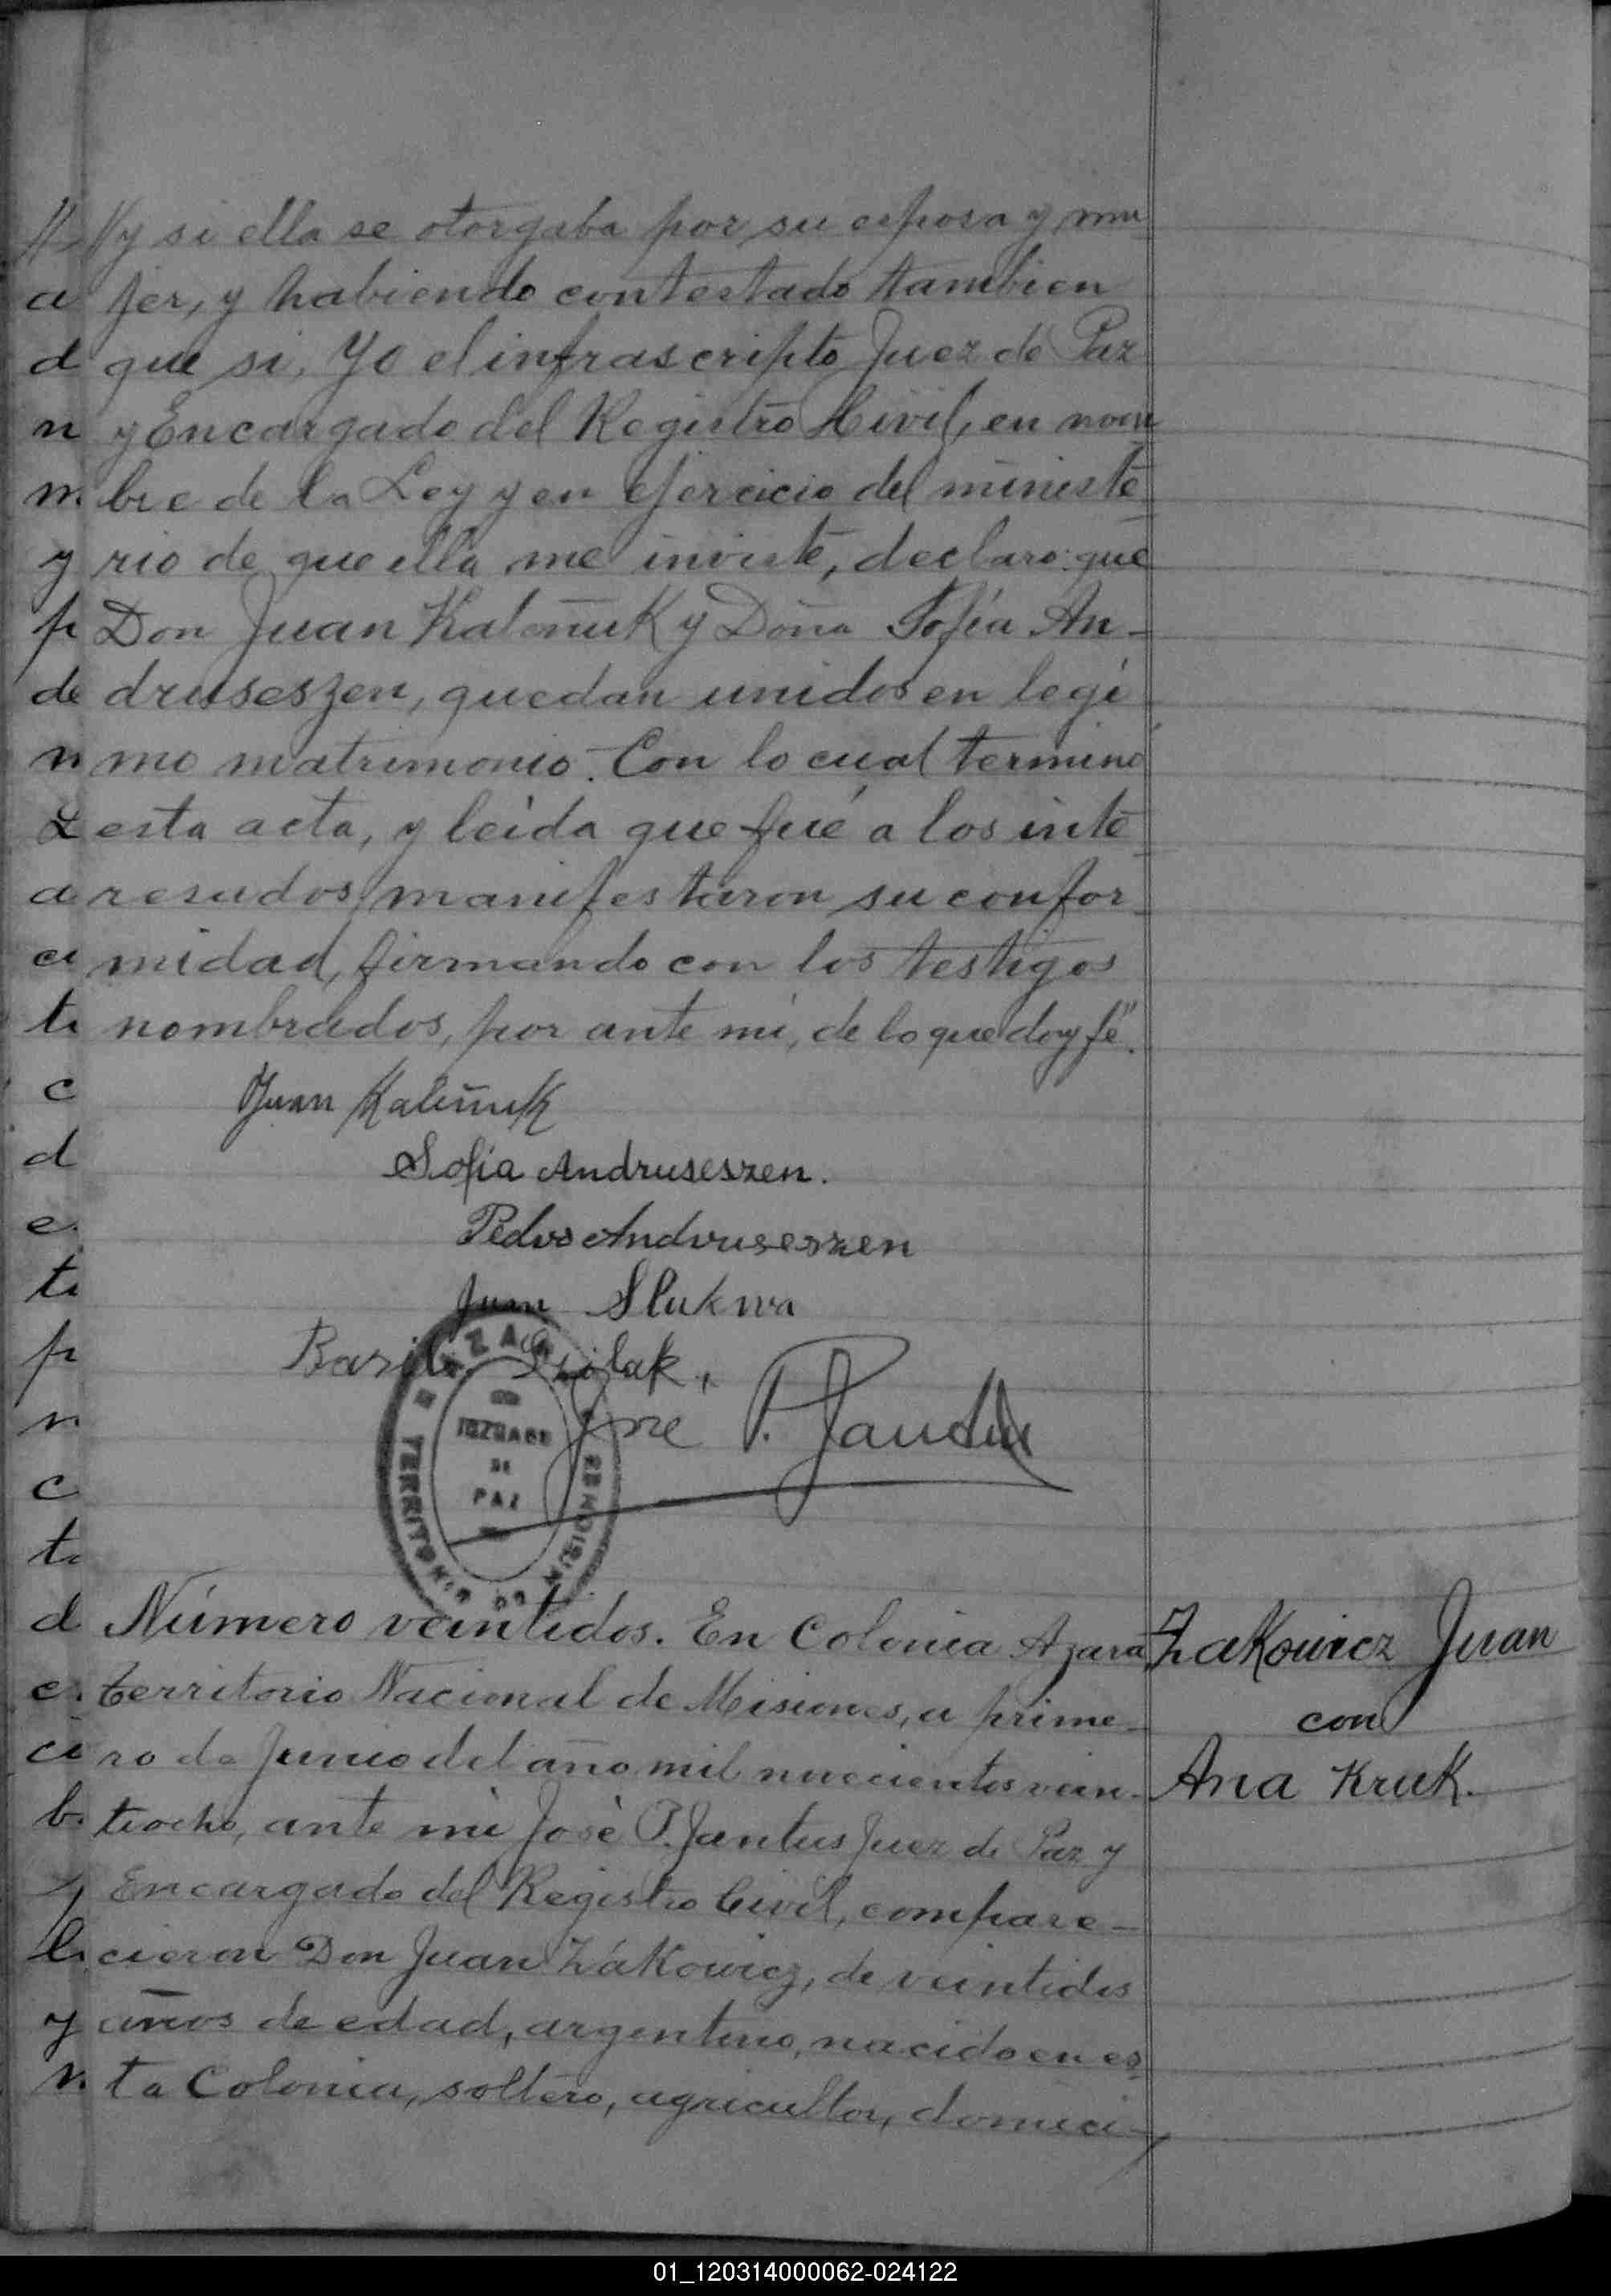 // y si ella se otorgaba por su esposa y mu
jer, y habiendo contestado tambien
que si, Yo el infrascripto Juez de Paz
y Encargado del Registro Civil, en nom
bre de la Ley y en ejercicio del ministe
rio de que ella me inviste, declaro: que
Don Juan Kaleñuk y Doña Sofía An-
druseszen, quedan unidos en legi
mo matrimonio. Con lo cual terminó
esta acta, y leida que fué a los inte
resados, manifestaron su confor-
midad, firmando con los testigos
nombrados, por ante mi, de lo que doy fé".
Juan Kaliñuk
Sofía Andruseszen.
Pedro Andruseszen
Juan Slukwa
Basil
José P.
AZARA
JUZGADO
DE
PAZ
TERRITORIO DE MISIONES
Número veintidos. En Colonia Azara
Territorio Nacional de Misiones, a prime-
ro de Junio del año mil nuecientos vein-
tiocho, ante mi José P. Jantus Juez de Paz y
Encargado del Registro Civil, compare-
cieron Don Juan Zákowicz, de veintidos
años de edad, argentino, nacido en es
ta Colonia, soltero, agricultor, domici-
Zakowicz Juan
con
Ana Kruk.
a
d
n
m
y
p
de
n
Z
a
ci
ti
c
d
e
ti
p
n
c
t
d
e
ci
b
y
y
n
01_120314000062-024122